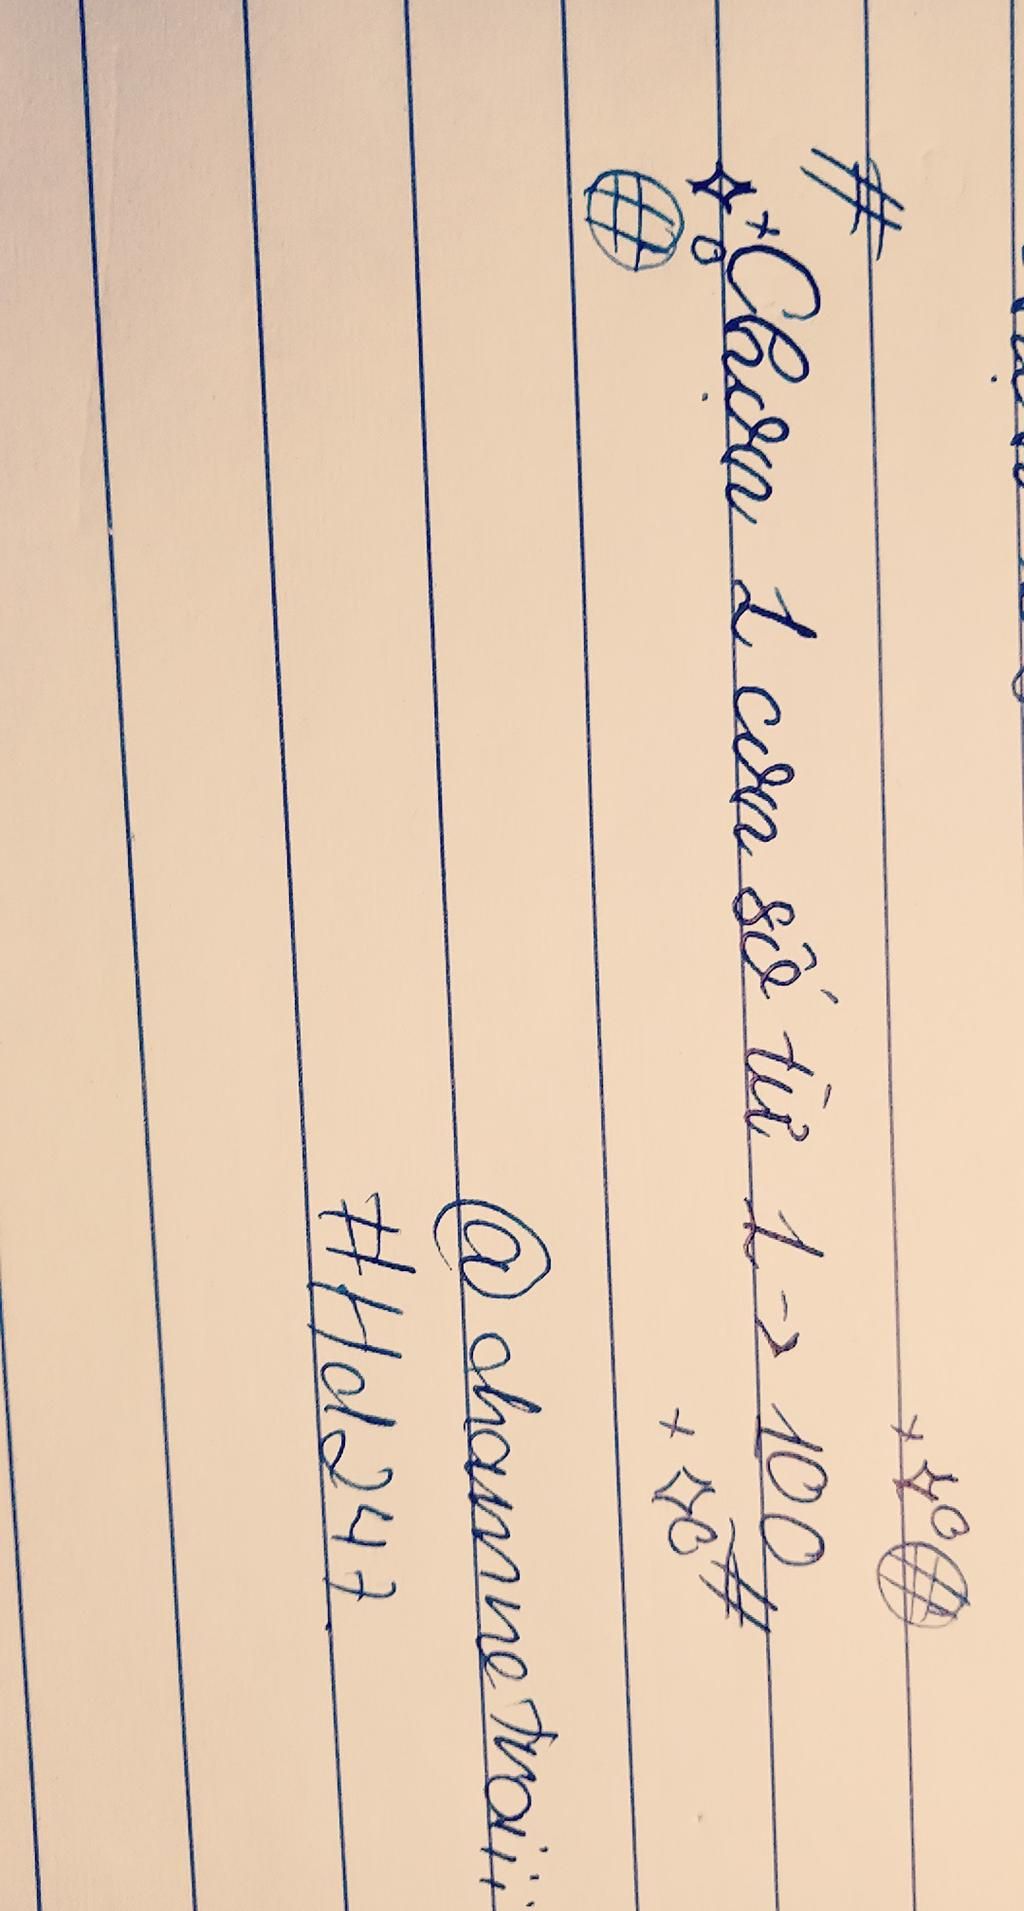 Chọn 1 con số từ 1 -> 100
@channetraii
#Hd247